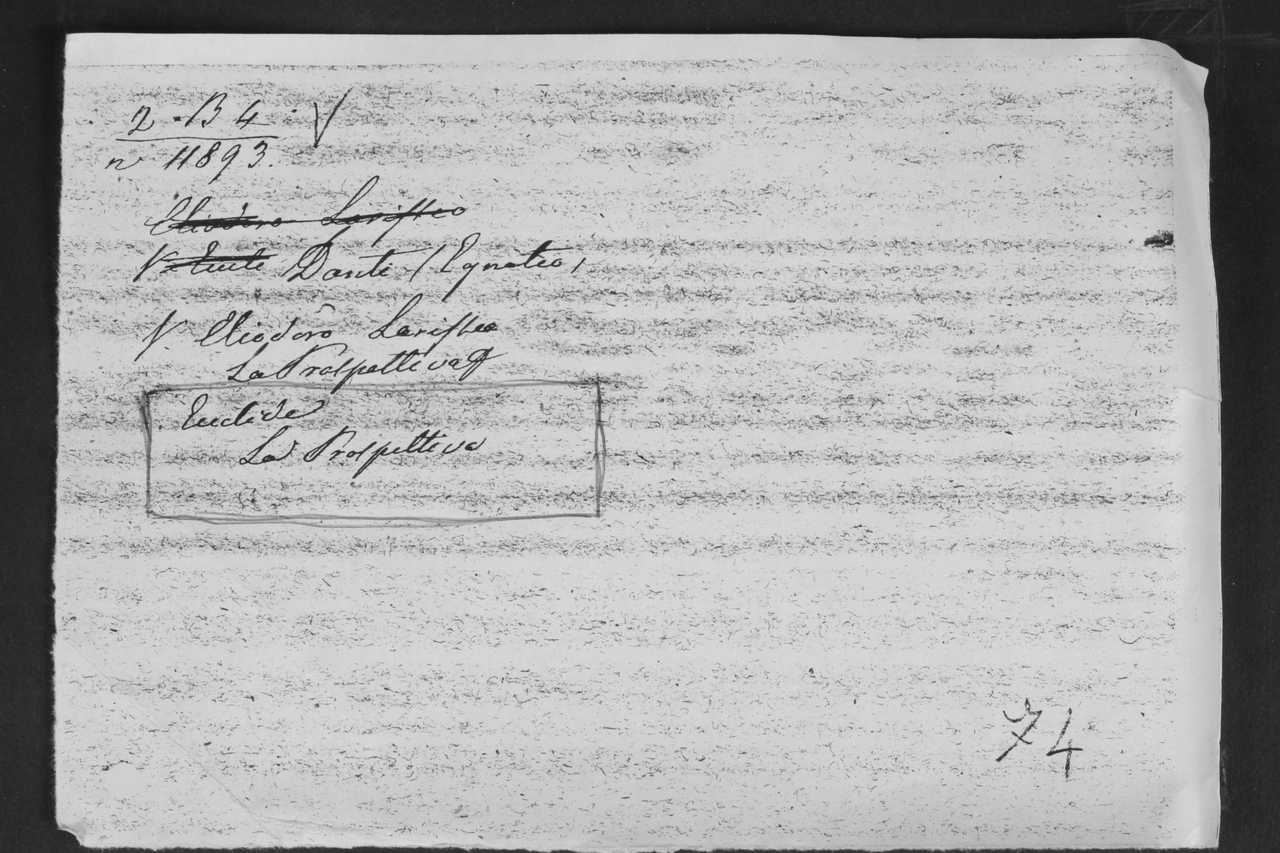 2 · B 4 V
n° 11893.
Eliodoro Larisseo
V Dante (Egnatio)
V Eliodoro Larisseo
La Prospettiva
Euclide
La Prospettiva
74